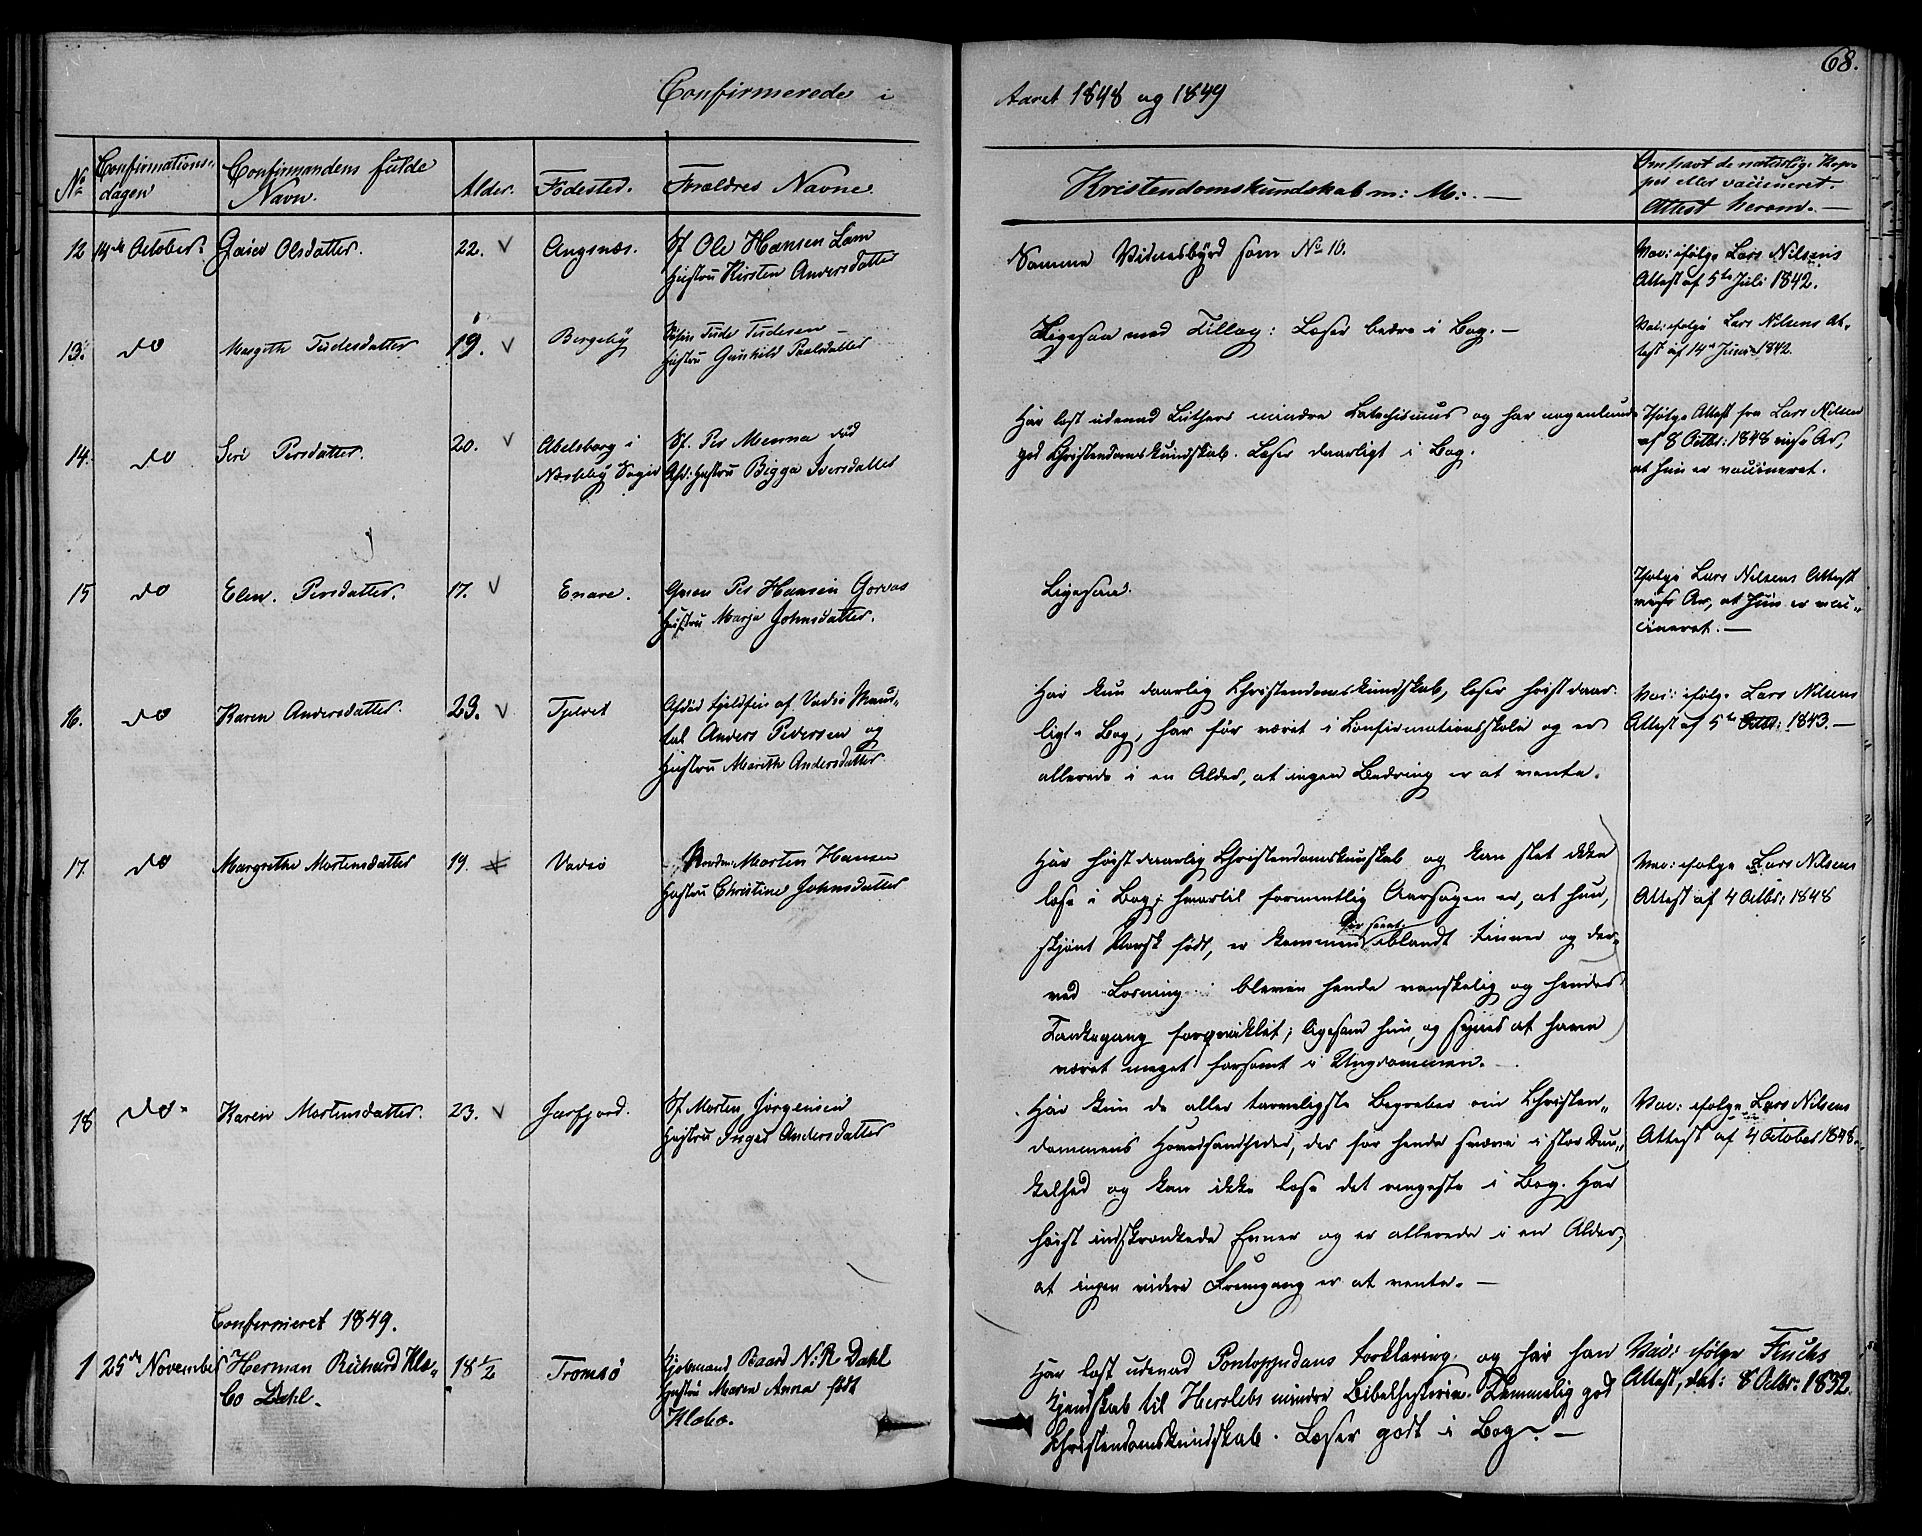 68.
Confirmerede i Aaret 1848 og 1849
No
Confirmations-
dagen
Confirmandens fulde
Navn.
Alder.
Fodested.
Forældres Navne.
Kristendomskundskab m: M:. —
Om havt de naturlige Kop-
per eller vaccineret.
Attest herom. —
12 14de October. Olsdatter. 22. Angsnæs.
Sf. Ole Hansen Lam
Hustru Kirsten Andersdatter
Samme Vidnesbyrd som No 10.
Vac: ifølge Lars Nilsens
Attest af 5te Juli 1842.
13. do Margith Tudesdatter 19. Bergeby
Søfin Tude Tudesen —
Hustru Gunhild Paalsdatter
Ligesaa med Tillæg: Læser bedre i Bog. —
Vac: ifølge Lars Nilsens At-
test af 14de Juni 1842.
14. do Siri Persdatter. 20. Abelsborg i
Næsseby Sogn
Sf. Per Menna død
Afd: Hustru Bigga Iversdatter
Har læst udenad Luthers mindre Catechismus og har nogenlunde
god Christendomskundskab. Læser daarligt i Bog.
Ifølge Attest fra Lars Nilsen
af 8 Octbr: 1848
at hun er vaccineret.
15 do Elen. Persdatter. 17. Enare.
Per Hansen Gorvas
Hustru Marja Johnsdatter.
Ligesaa.
Ifølge Lars Nilsens Attest
at hun er vac-
cineret. —
16. do Karen Andersdatter. 23. Fjeldet
Afdød Fjeldfin af Vadsø Mand-
tal Anders Pedersen og
Hustru Marith Andersdatter.
Har kun daarlig Christendomskundskab, læser høist daar-
ligt i Bog, har før været i Confirmationsskole og er
allerede i en Alder, at ingen Bedring er at vente.
Vac: ifølge Lars Nilsens
Attest af 5te Octbr: 1843. —
17. do Margrethe Mortensdatter 19. Vadsø
Nordm: Morten Hansen
Hustru Christine Johnsdatter
Har høist daarlig Christendomskunskab og kan slet ikke
læse i Bog; hvortil formentlig Aarsagen er, at hun,
skjønt Norsk født, er kommen for seent iblandt Finner og der-
ved Læsning bleven hende vanskelig og hendes
Tankegang forqvaklet; ligesom hun og synes at have
været meget forsømt i Ungdommen. —
Vac: ifølge Lars Nilsens
Attest af 4 Octbr: 1848
18 do. Karen Mortensdatter. 23. Jarfjord.
Sf. Morten Jørgensen
Hustru Inger Andersdatter
Har kun de aller tarveligste Begreber om Christen-
dommens Hovedsandheder, der for hende svæve i stor Dun-
kelhed og kan ikke læse det ringeste i Bog. Har
høist indskrænkede Evner og er allerede i en Alder,
at ingen videre Fremgang er at vente. —
Vac: ifølge Lars Nilsens
Attest af 4 October 1848.
Confirmeret 1849.
1 25de November Herman Richard Klæ-
bo Dahl. 18 1/2 Tromsø
Kjøbmand Baard N: R Dahl
Hustru Maren Anna født
Klæbo.
Har læst udenad Pontoppidans Forklaring og har han
Kjendskab til Herslebs mindre Bibelhistorie. Temmelig god
Christendomskundskab. Læser godt i Bog. —
Vac: ifølge Fuchs
Attest, dat: 8 Octbr: 1832.